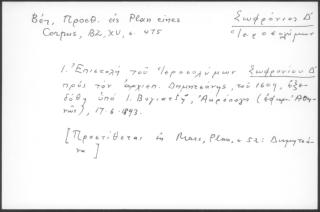 Βέη, Προσθ. εἰς Plan eines
Corpus, BZ, XV, σ. 475
Σωφρόνιος Δ'
Ἱεροσολύμων
1. Ἐπιστολὴ τοῦ Ἱεροσολύμων Σωφρονίου Δ'
πρὸς τὸν ἀρχιεπ. Δημητσάνης, τοῦ 1604, ἐξε-
δόθη ὑπὸ Ι. Βογιατζῆ, Ἀκρόπολις (ἐφημ. Ἀθη-
νῶν), 17.6.1893.
[Προστίθεται εἰς Plan, σ. 52: Δημητσά-
να ]